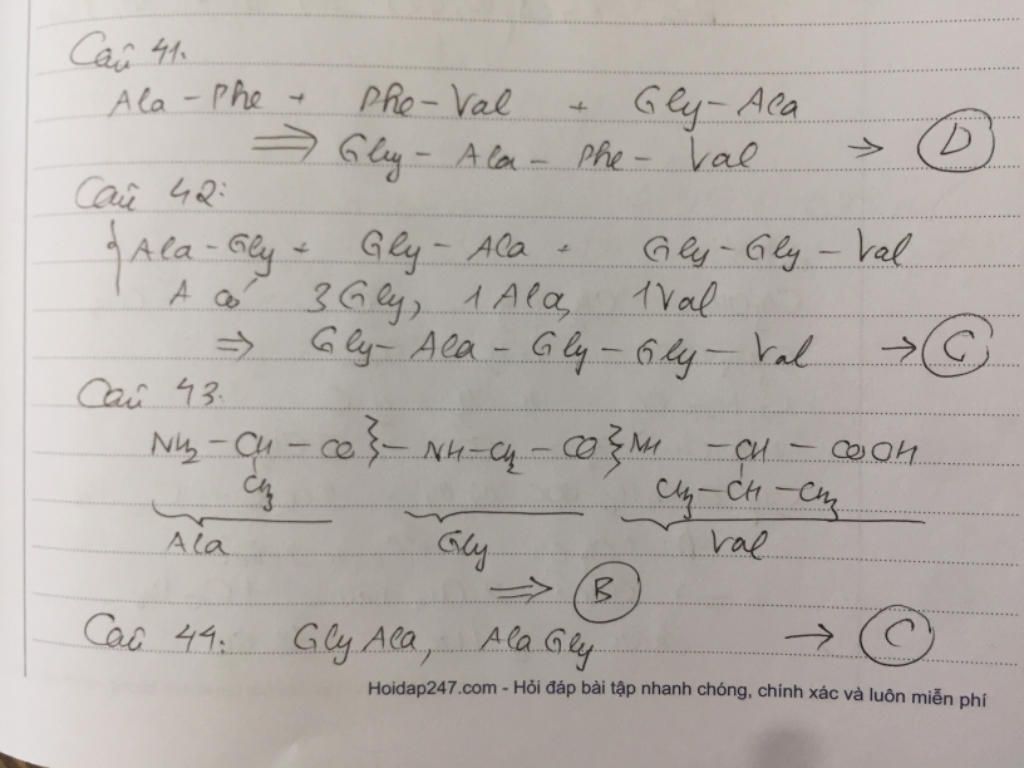 Câu 41.
Ala - Phe + Phe - Val + Gly - Ala
⟹ Gly - Ala - Phe - Val → D
Câu 42:
{ Ala - Gly + Gly - Ala + Gly - Gly - Val
A có 3 Gly, 1 Ala, 1 Val
⇒ Gly - Ala - Gly - Gly - Val → C
Câu 43.
NH2 - CH - CO } - NH - CH2 - CO } NH - CH - COOH
CH3 CH3 - CH - CH3
Ala Gly Val
⟹ B
Câu 44: Gly Ala, Ala Gly → C
Hoidap247.com - Hỏi đáp bài tập nhanh chóng, chính xác và luôn miễn phí